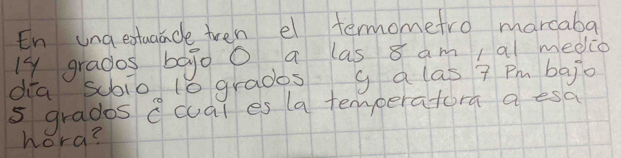 En una estuacinde tren el termometro marcaba
14 grados bajo 0 a las 8 am, al medio
día subio 10 grados y a las 7 Pm bajo
5 grados ¿ cual es la temperatura a esa
hora?